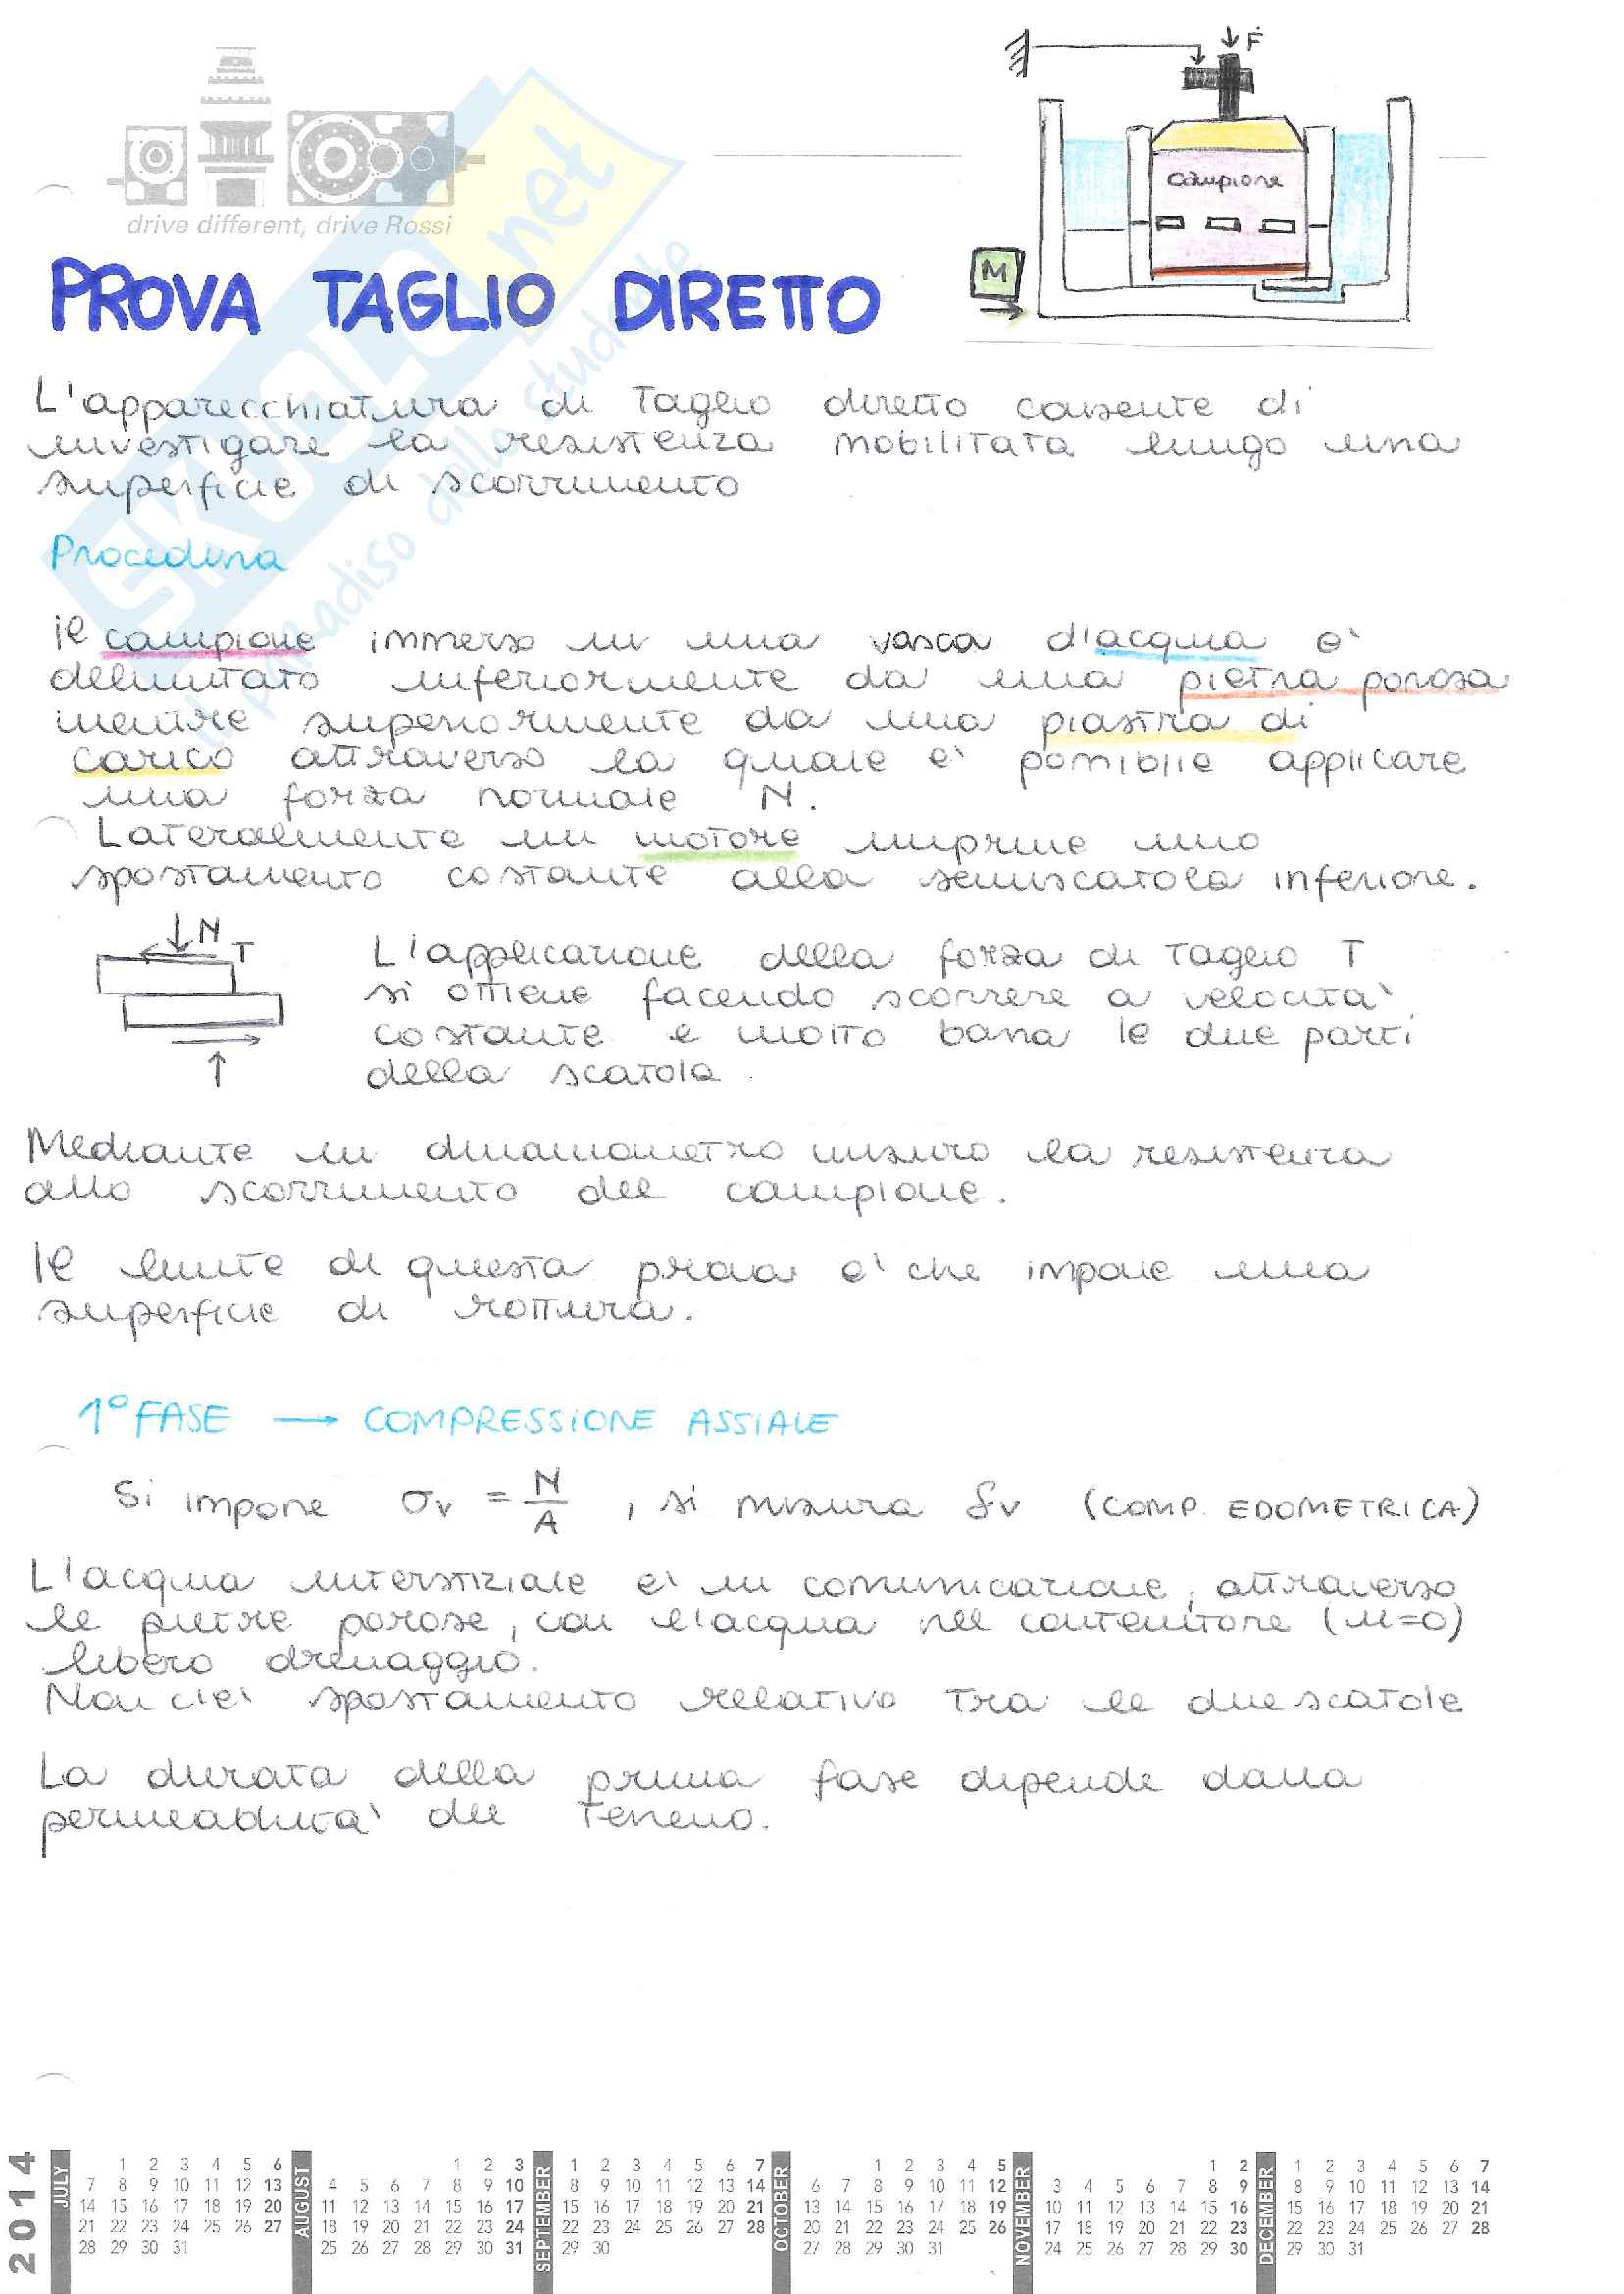 F
campione
M
drive different, drive Rossi
SKUOLA.net
il paradiso dello studente
PROVA TAGLIO DIRETTO
L'apparecchiatura di taglio diretto consente di
investigare la resistenza mobilitata lungo una
superficie di scorrimento
Procedura
il campione immerso in una vasca d'acqua e'
delimitato inferiormente da una pietra porosa
mentre superiormente da una piastra di
carico attraverso la quale e' possibile applicare
una forza normale N.
Lateralmente un motore imprime uno
spostamento costante alla semiscatola inferiore.
N
T
L'applicazione della forza di taglio T
si ottiene facendo scorrere a velocita'
costante e molto bassa le due parti
della scatola.
Mediante un dinamometro misuro la resistenza
allo scorrimento del campione.
Il limite di questa prova e' che impone una
superficie di rottura.
1° FASE → COMPRESSIONE ASSIALE
Si impone σv = N/A , si misura δv (COMP. EDOMETRICA)
L'acqua interstiziale e' in comunicazione, attraverso
le pietre porose, con l'acqua nel contenitore (u=0)
libero drenaggio.
Non c'e' spostamento relativo tra le due scatole
La durata della prima fase dipende dalla
permeabilita' del terreno.
2014
JULY
1 2 3 4 5 6
7 8 9 10 11 12 13
14 15 16 17 18 19 20
21 22 23 24 25 26 27
28 29 30 31
AUGUST
1 2 3
4 5 6 7 8 9 10
11 12 13 14 15 16 17
18 19 20 21 22 23 24
25 26 27 28 29 30 31
SEPTEMBER
1 2 3 4 5 6 7
8 9 10 11 12 13 14
15 16 17 18 19 20 21
22 23 24 25 26 27 28
29 30
OCTOBER
1 2 3 4 5
6 7 8 9 10 11 12
13 14 15 16 17 18 19
20 21 22 23 24 25 26
27 28 29 30 31
NOVEMBER
1 2
3 4 5 6 7 8 9
10 11 12 13 14 15 16
17 18 19 20 21 22 23
24 25 26 27 28 29 30
DECEMBER
1 2 3 4 5 6 7
8 9 10 11 12 13 14
15 16 17 18 19 20 21
22 23 24 25 26 27 28
29 30 31